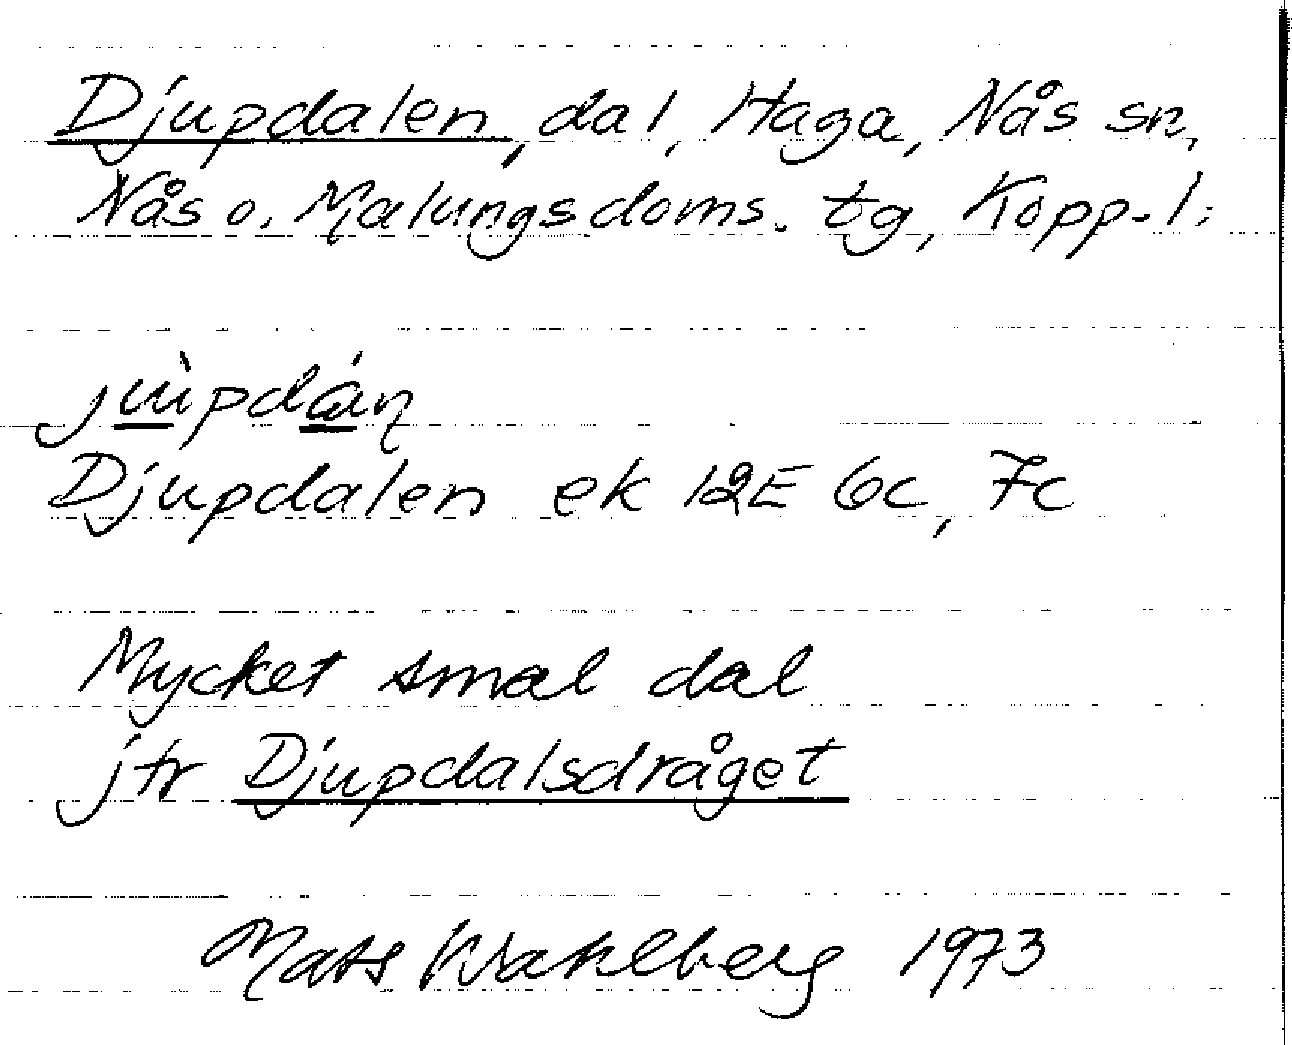 Djupdalen, dal, Haga, Nås sn,
Nås o. Malungs doms. tg, Kopp. l.
jɯ̀pdán
Djupdalen ek 12E 6c, 7c
Mycket smal dal
jfr Djupdalsdråget
Mats Wahlberg 1973